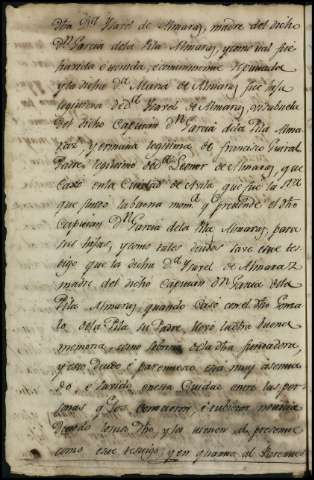 dha Dª Ysavel de Almaraz, madre del dicho
Dn Garcia dela Pila Almaraz, y como tal fue
havida e tenida, e comunmente reputada
y la dicha Dª Maria de Almaraz fue hija
lexitima de Dª Ysavel de Almaraz, visabuela
del dicho Capitan Dn Garcia dela Pila Alma
raz, y ermana lexitima de francisco
Padre lexitimo de Dª Leonor de Almaraz, que
Caso en la Ciudad de que fue la
que fundo la buena mem.ª q pretende el dho
Capitan Dn Garcia dela Pila Almaraz, para
sus hijas, y como tales deudos save este tes
tigo que la dicha Dª Ysavel de Almaraz
madre del dicho Capitan Dn Garcia dela
Pila Almaraz, quando Caso con el dho Gonza
lo dela Pila su Padre, llevo la dha buena
memoria, como sobrina dela dha fundadora,
y este deudo e parentesco era muy
do e savido en esta Ciudad entre las per
sonas q los conocieron, e tubieron noticia
deudo los susodho, y los tienen al presente
como este testigo, y en quanto al